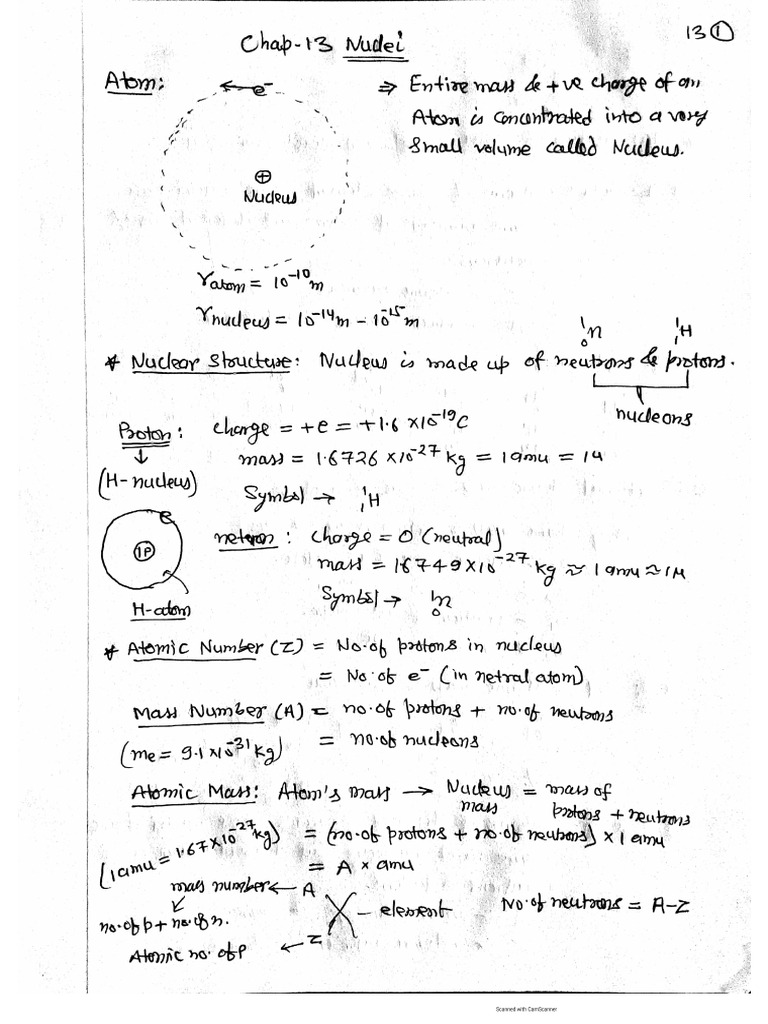 13 ①
Chap-13 Nuclei
Atom:
e⁻
⇒ Entire mass & +ve charge of an
Atom is concentrated into a very
small volume called Nucleus.
⊕
Nucleus
r atom = 10⁻¹⁰ m
r nucleus = 10⁻¹⁴ m - 10⁻¹⁵ m
¹₀n ¹₁H
* Nuclear Structure: Nucleus is made up of neutrons & protons.
nucleons
Proton: charge = +e = +1.6 × 10⁻¹⁹ C
↓
(H-nucleus)
mass = 1.6726 × 10⁻²⁷ kg = 1 amu = 1u
Symbol → ¹₁H
e
1P
H-atom
netron: charge = 0 (neutral)
mass = 1.6749 × 10⁻²⁷ kg ≈ 1 amu ≈ 1u
Symbol → ¹₀n
* Atomic Number (Z) = No. of protons in nucleus
= No. of e⁻ (in netral atom)
Mass Number (A) = no. of protons + no. of neutrons
(me = 9.1 × 10⁻³¹ kg) = no. of nucleons
Atomic Mass: Atom's mass → Nucleus mass = mass of protons + neutrons
(1 amu = 1.67 × 10⁻²⁷ kg) = (no. of protons + no. of neutrons) × 1 amu
= A × amu
mass number ← A
↙
no. of p + no. of n.
X – element
No. of neutrons = A-Z
Atomic no. of P ← Z
Scanned with CamScanner